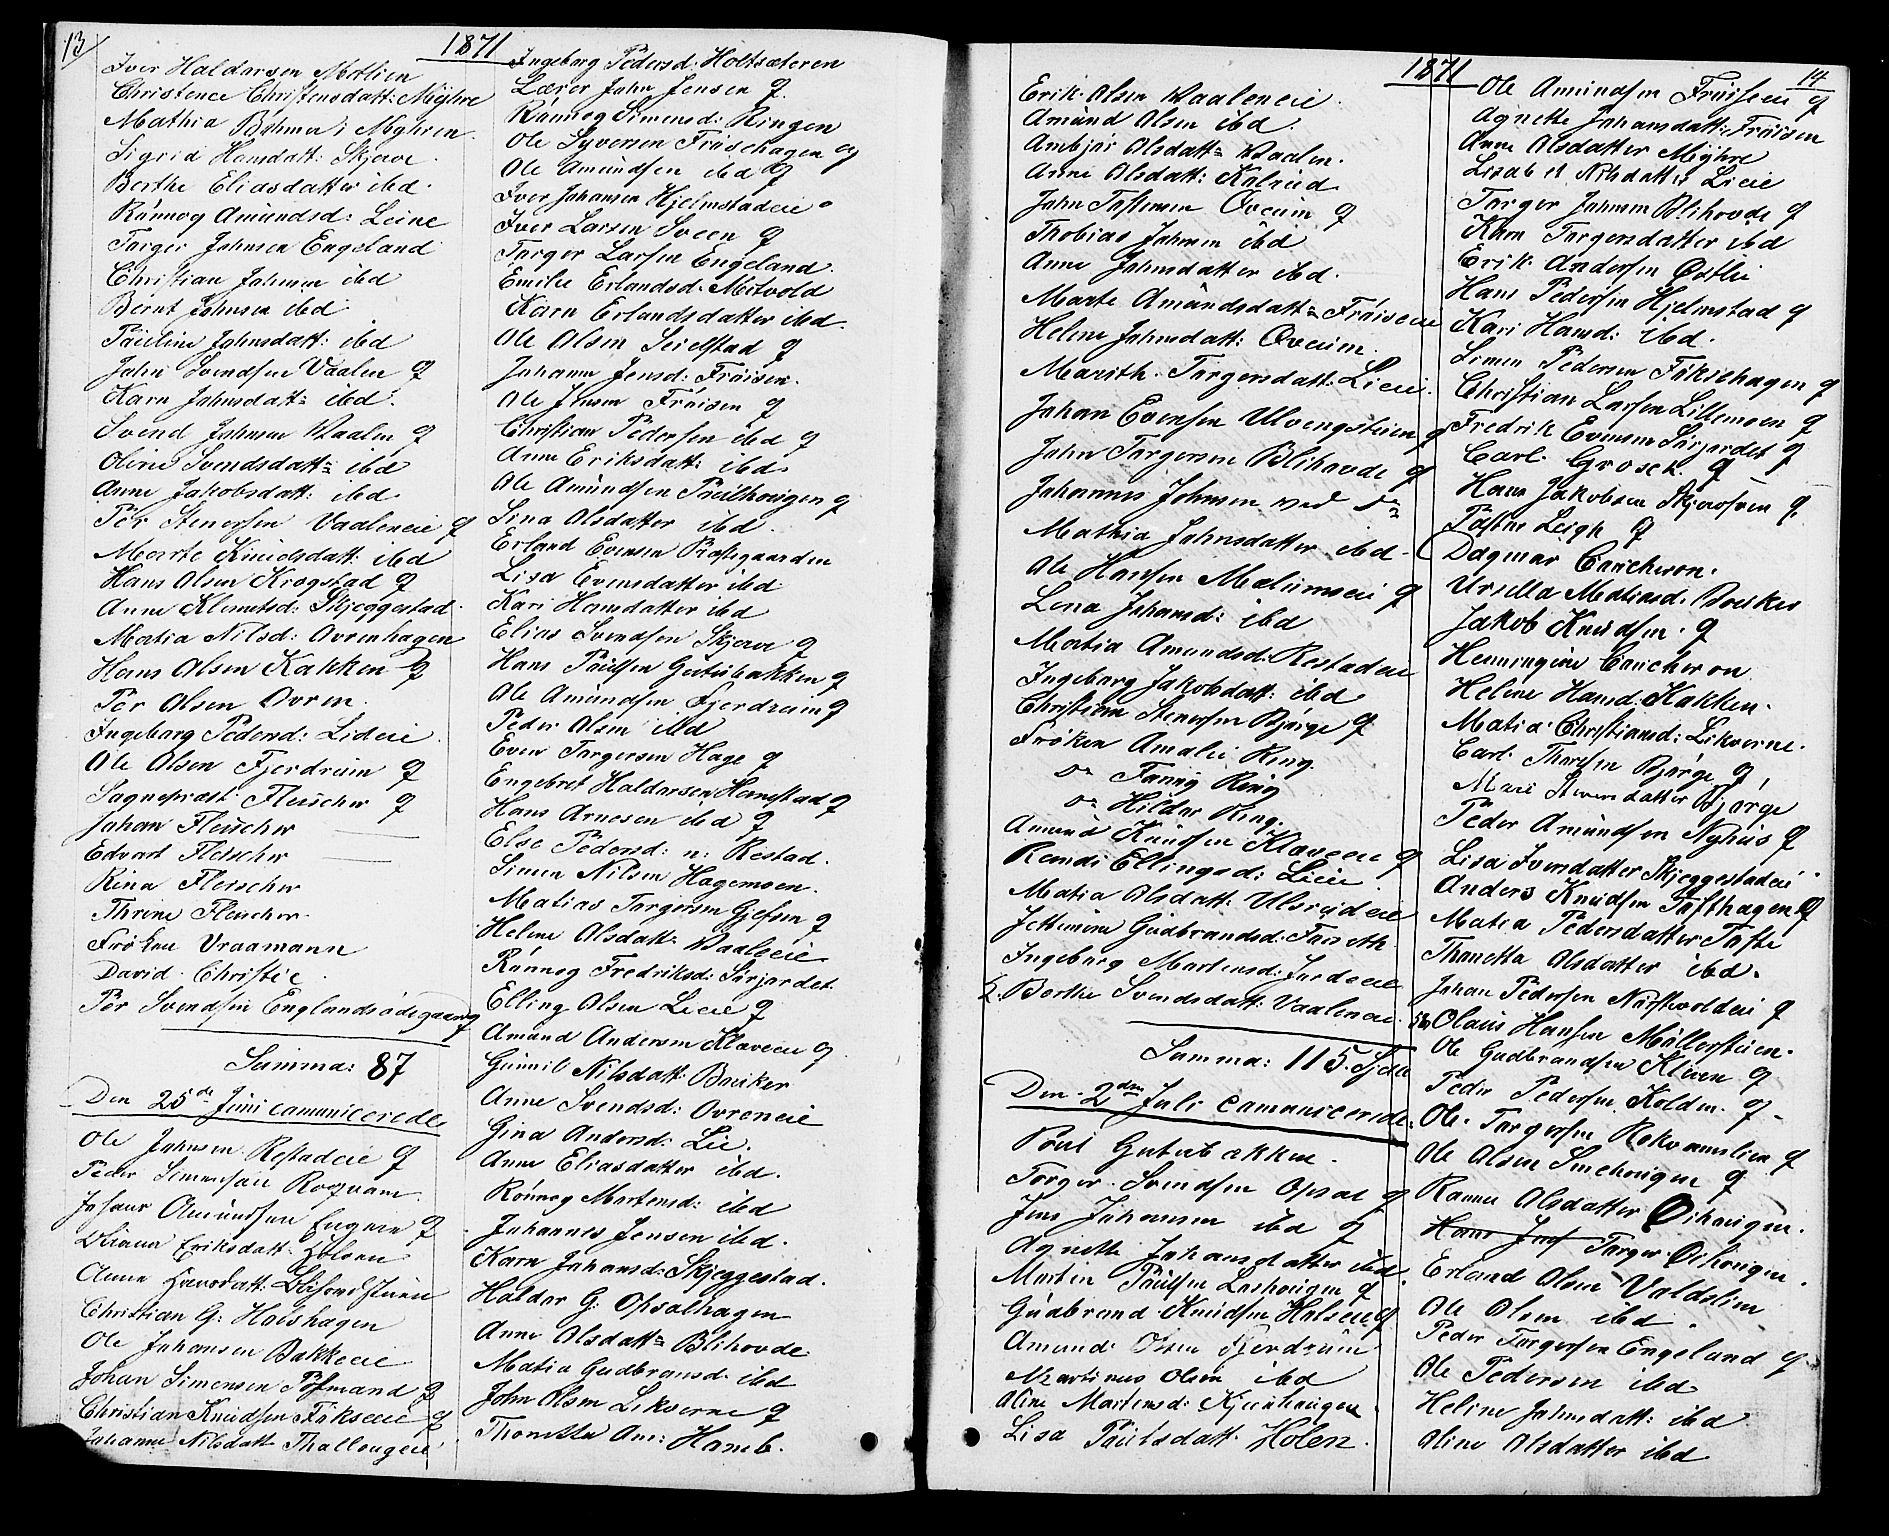 13
1871
Iver Haldorsen Molien
Christence Christensdatt: Myhre
Mathia Böhmer i Myhren
Sigrid Hansdatt: Skjerve
Berthe Eliasdatter ibd
Rönnog Amundsd: Leine
Torger Johnsen Engeland
Christian Johnsen ibd
Bernt Johnsen ibd
Pauline Johnsdatt: ibd
John Svendsen Vaalen q
Karn Johnsdatt: ibd
Svend Johnsen Vaalen q
Oline Svendsdatt: ibd
Anne Jakobsdatt: ibd
Per Stenersen Vaaleneie q
Marte Knudsdatt: ibd
Hans Olsen Krogstad q
Anne Klemetsd: Skjeggestad
Matia Nilsd: Ovrenhagen
Hans Olsen Kakken q
Per Olsen Ovren
Ingeborg Pedersd: Lideie
Ole Olsen Fjerdrum q
Sognepræst Fleischer q
Johan Fleischer
Edvart Fleischer
Rina Fleischer
Thrine Fleischer
Frøken Vraamann
David Christie
Per Svendsen Englandsödegaard q
Summa: 87
Den 25de Juni comunicerede
Ole Johnsen Restadeie q
Peder Simensen Rogvam
Johans Amundsen Engeneie q
Eriksdatt: Holsen
Anne
Christian G: Holshagen
Ole Johansen Bakkeeie
Johan Simensen Posmand q
Christian Knudsen Fökseeie q
Johanne Nilsdatt Thallougeie
Ingeborg Pedersd: Holtsæteren
Lærer John Jensen q
Rönnog Simensd: Ringen
Ole Syversen Fröisehagen q
Ole Amundsen ibd q
Iver Johansen Hjelmstadeie
Iver Larsen Sveen q
Torger Larsen Engeland
Emilie Erlandsd: Moevold
Karn Erlandsdatter ibd
Ole Olsen Seielstad q
Johanne Jensd: Fröisen
Ole Jensen Fröisen q
Christian Pedersen ibd q
Anne Eriksdatt: ibd
Ole Amundsen Paulhougen q
Sina Olsdatter ibd
Erland Evensen Præstgaarden
Lisa Evensdatter ibd
Kari Hansdatter ibd
Elias Svendsen Skjerve q
Hans Paulsen Guterbakken q
Ole Amundsen Fjerdrum q
Peder Olsen ibd
Even Torgersen Hage q
Engebret Haldorsen Hernestad q
Hans Arnesen ibd q
Else Pedersd: n: Restad
Simen Nilsen Hagemoen
Matias Torgersen Gjefsen q
Helene Olsdatt: Vaaleeie
Rönnog Fredriksd: Sörjordet
Elling Olsen Lieeie q
Amund Andersen Klæveeie q
Gunnil Nilsdatt: Bauker
Anne Svendsd: Ovreneie
Gina Andersd: Lie
Anne Eliasdatter ibd
Rönnog Mortensd: ibd
Johannes Jensen ibd
Karn Johansd: Skjeggestad
Haldor G: Opsalhagen
Anne Olsdatt: Blihovde
Matia Gudbransd: ibd
John Olsen Likverne q
Thonetta Am: Hamb.
1871
14
Erik Olsen Vaaleneie
Amund Olsen ibd
Ambjör Olsdatt: Vaalen
Anne Olsdatt: Kalrud
John Tostensen Öveim q
Thobias Johnsen ibd
Anne Johnsdatter ibd
Marte Amundsdatt: Fröiseeie
Helene Johnsdatt: Öveim
Marith Torgersdatt: Lieeie
Johan Evensen Ulvengsteien q
John Torgersen Blihovde q
Johannes Johnsen ved do
Mathia Johnsdatter ibd
Ole Hansen Mælumseie q
Lena Johansd: ibd
Matia Amundsd: Restadeie
Ingeborg Jakobsdatt: ibd
Christian Stenersen Bjørge q
Frøken Amalie Ring
do Fanny Ring
do Hildar Ring
Amund Knudsen Klæveeie q
Randi Ellingsd: Lieeie
Matia Olsdatt: Ulsrudeie
Jettimine Gudbrandsd: Fasseth
Ingeborg Martensd: Jordeeie
L. Berthe Svendsdatt: Vaaleneie
Summa: 115. Sjæle
Den 2den Juli comunicerede
Poul Guterbakken
Torger Svendsen Opsal q
Jens Johansen ibd q
Agnethe Johansdatter ibd
Martin Paulsen Loshougen q
Gudbrand Knudsen Halseeie q
Amund Olsen Fjerdrum
Martinus Olsen ibd
Oline Martinsd: Kjeenhougen
Lisa Paulsdatt: Holen
Ole Amundsen Fröiseeie q
Agnethe Johansdatt: Fröisen
Anne Olsdatter Myhre
Lisabet Nilsdatter Lieeie
Torger Johnsen Blihovde q
Karn Torgersdatter ibd
Erik Andersen Østlie
Hans Pedersen Hjelmstad q
Kari Hansd: ibd
Simen Pedersen Fökschagen q
Christian Larsen Lillemoen q
Fredrik Evensen Sörjordet q
Carl Grosck q
Hans Jakobsen Skjerveen q
Pastor Leigh q
Dagmar Cancheron
Ursella Matiasd: Bouker
Jakob Knudsen q
Henningine Cancheron
Helene Hansd: Kakken
Matia Christiansd: Likverne
Carl Thorsen Bjørge q
Mari Iversdatter Bjørge
Peder Amundsen Nyhus q
Lisa Iversdatter Skjeggestadeie
Anders Knudsen Tofthagen q
Matea Pedersdatter Tofte
Thonetta Olsdatter ibd
Johan Pedersen Nörstvoldeie q
Olaus Hansen Möllersteien
Ole Gudbrandsen Kleven q
Peder Pedersen Kolden q
Ole Torgersen Rokvamslien q
Ole Olsen Smehougen q
Ranne Olsdatter Oihougen
Hans Jens Torger Oihougen
Erland Olsen Valdslien
Ole Olsen ibd
Peder Torgersen Engeland q
Ole Pedersen ibd
Heline Johnsdatt: ibd
Oline Olsdatter ibd